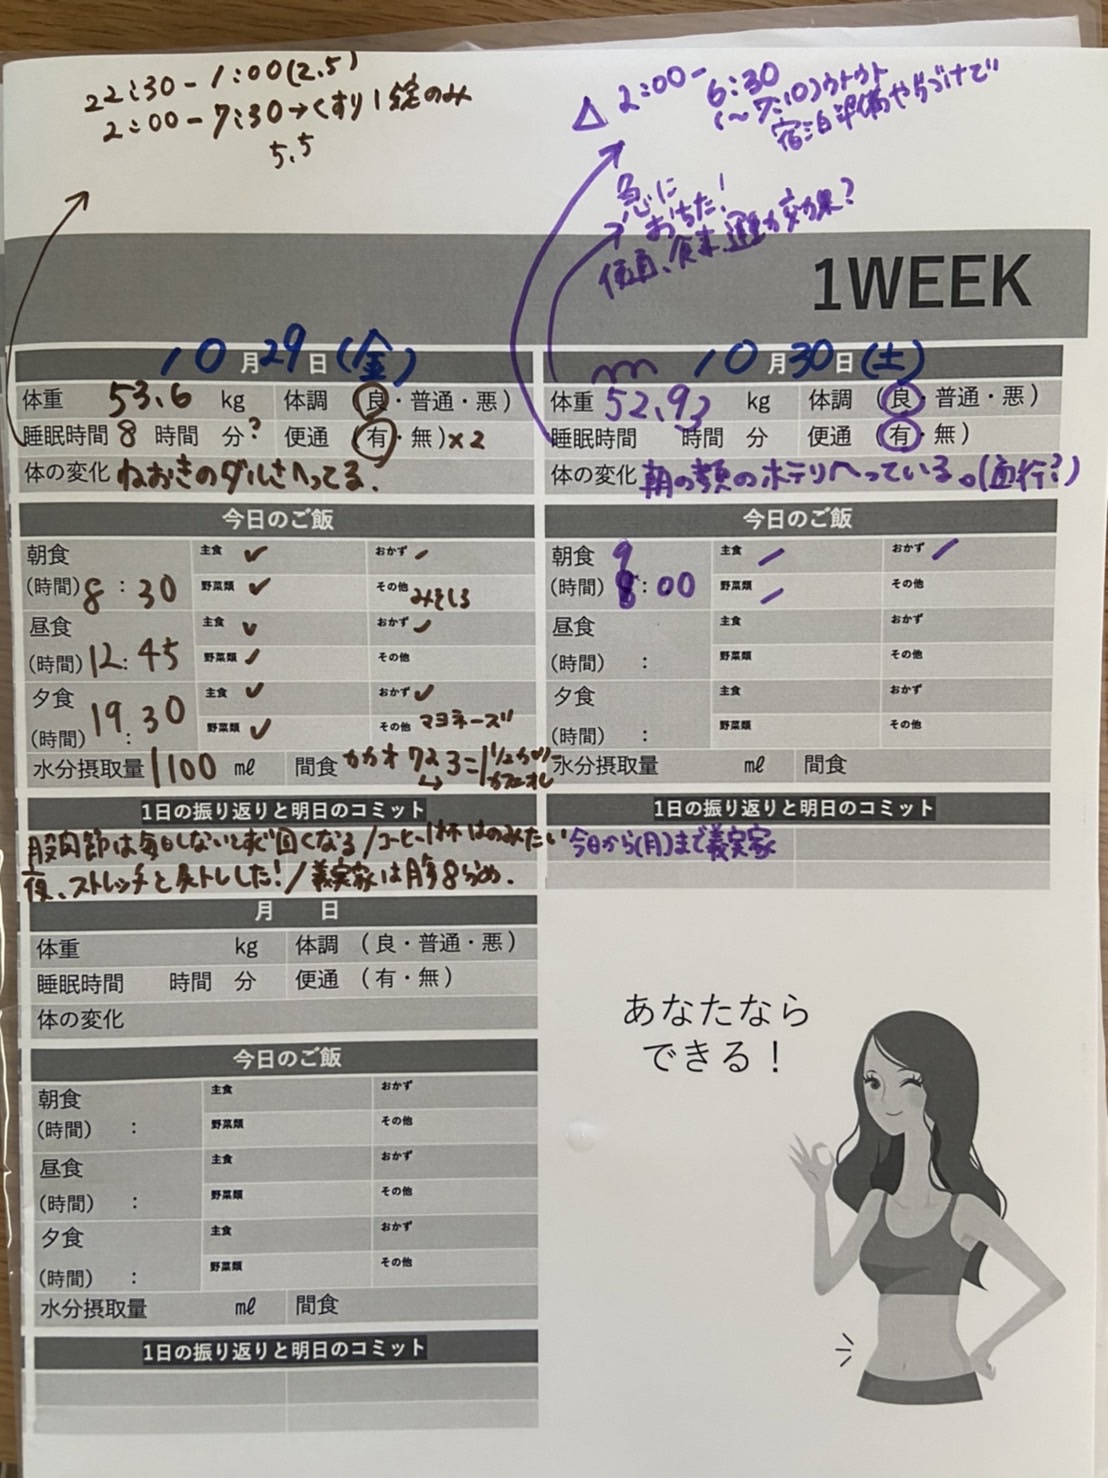 22:30-1:00(2.5)
2:00-7:30→くすり1錠のみ
5.5
△ 2:00-6:30
(~7:10)ウトウト
宿泊準備や片づけで
急に
おちた!
便通、食事、運動効果?
1WEEK
10月29日(金)
体重 53.6 kg 体調 (良・普通・悪)
睡眠時間 8 時間 分? 便通 (有・無)×2
体の変化 ねおきのダルさへってる.
今日のご飯
朝食 主食 ✓ おかず ✓
(時間) 8:30 野菜類 ✓ その他 みそしる
昼食 主食 ✓ おかず ✓
(時間) 12:45 野菜類 ✓ その他
夕食 主食 ✓ おかず ✓
(時間) 19:30 野菜類 ✓ その他 マヨネーズ
水分摂取量 1100 ㎖ 間食 カカオ72 3=1 1/2
カフェオレ
1日の振り返りと明日のコミット
股関節は毎日しないとすぐ固くなる/コーヒー1杯はのみたい
夜、ストレッチと尻トレした!/義実家は腹8分め.
10月30日(土)
体重 52.93 kg 体調 (良・普通・悪)
睡眠時間 時間 分 便通 (有・無)
体の変化 朝の顔のホテリへっている。(血行?)
今日のご飯
朝食 主食 おかず
(時間) 9:00 野菜類 その他
昼食 主食 おかず
(時間) : 野菜類 その他
夕食 主食 おかず
(時間) : 野菜類 その他
水分摂取量 ㎖ 間食
1日の振り返りと明日のコミット
今日から(月)まで義実家
月 日
体重 kg 体調 (良・普通・悪)
睡眠時間 時間 分 便通 (有・無)
体の変化
今日のご飯
朝食 主食 おかず
(時間) : 野菜類 その他
昼食 主食 おかず
(時間) : 野菜類 その他
夕食 主食 おかず
(時間) : 野菜類 その他
水分摂取量 ㎖ 間食
1日の振り返りと明日のコミット
あなたなら
できる!